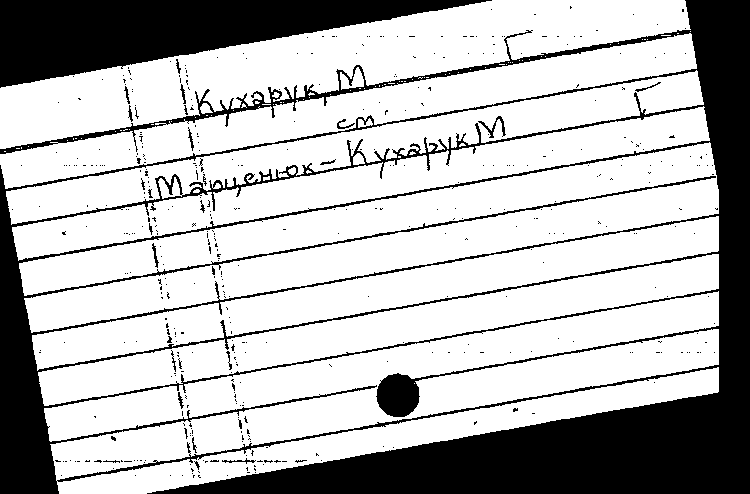 Кухарук, М Г
ст.
Марценюк - Кухарук, М Г